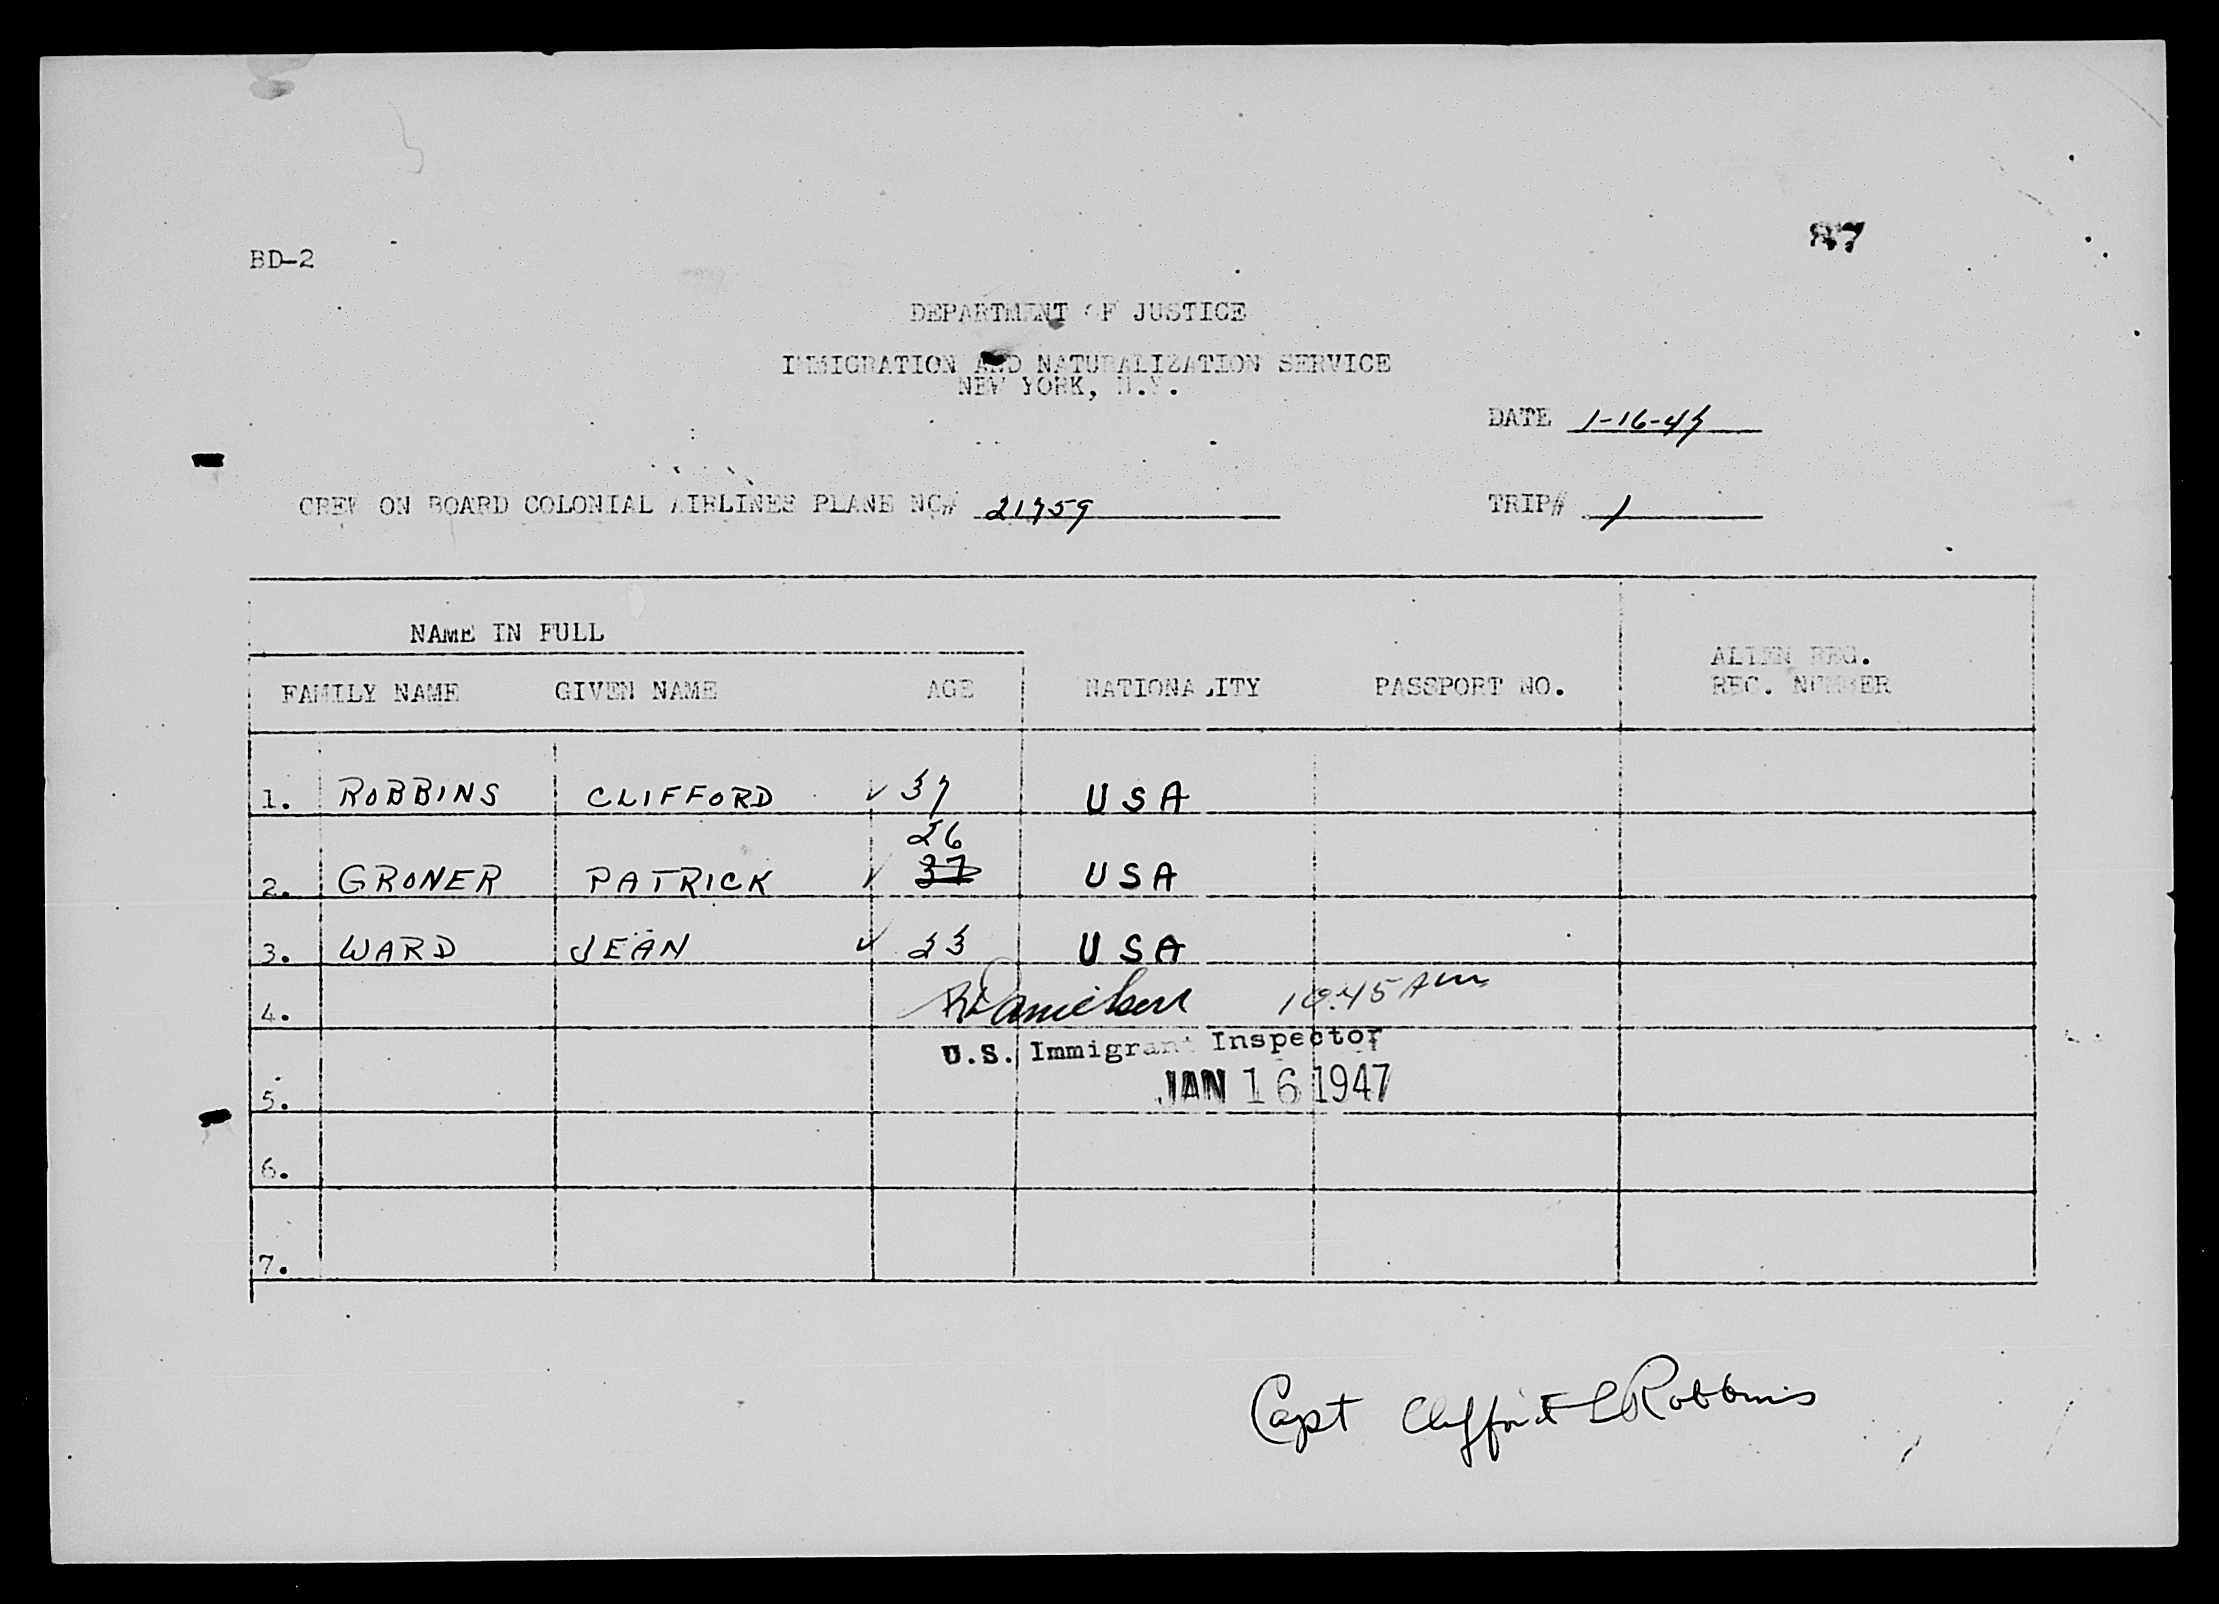 87
BD-2
DEPARTMENT OF JUSTICE
IMMIGRATION AND NATURALIZATION SERVICE
NEW YORK, N.Y.
DATE 1-16-47
CREW ON BOARD COLONIAL AIRLINES PLANE NO# 21759 TRIP# 1
NAME IN FULL
FAMILY NAME GIVEN NAME AGE NATIONALITY PASSPORT NO. ALIEN REG.
REC. NUMBER
1. ROBBINS CLIFFORD ✓ 37 USA
26
2. GRONER PATRICK ✓ 37 USA
3. WARD JEAN ✓ 23 USA
4. 10:45 AM
U.S. Immigrant Inspector
JAN 16 1947
5.
6.
7.
Capt Clifford L Robbins